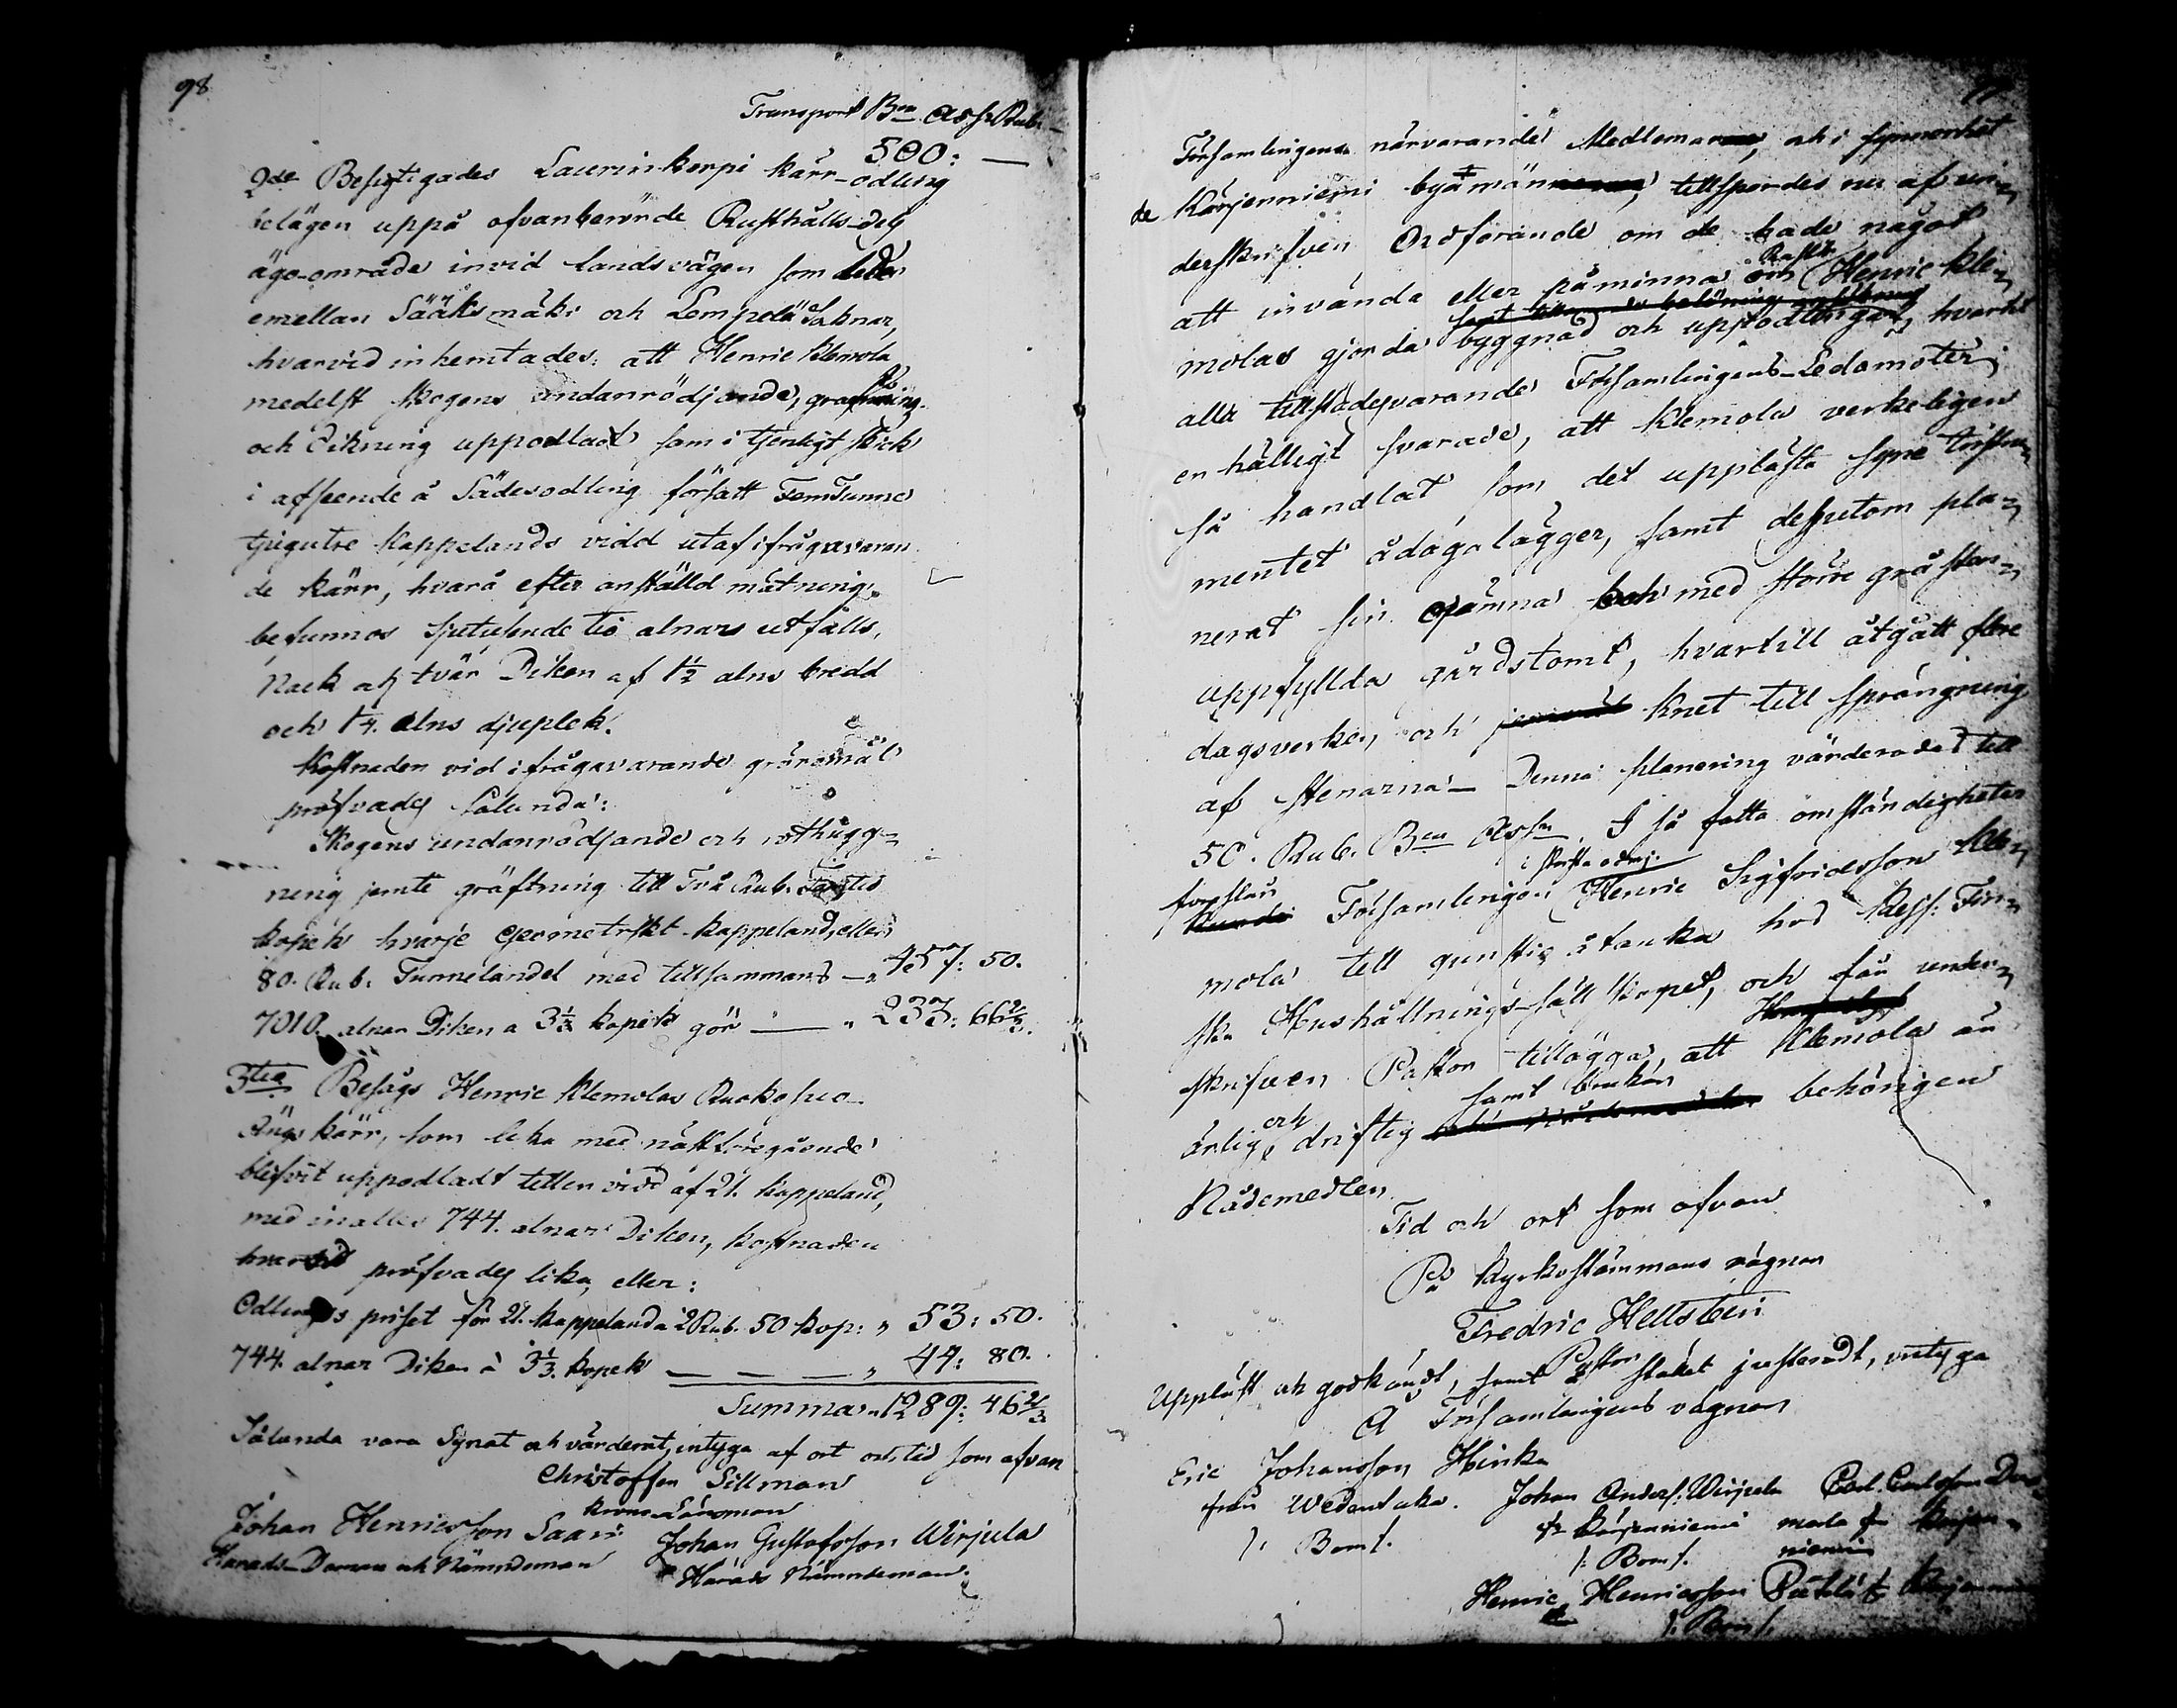 98
Transport Bco Ass. Rub.
500: —
2de Besigtigades Laurinkorpi kärr-odling
belägen uppå ofvanberörde Rusthålls-dels
ägo-område invid landsvägen som leder
emellan Sääksmäki och Lempelä Soknar,
hvarvid inhemtades: att Henric Klemola
medelst skogens undanrödjande, gräftning
och dikning uppodlat sam i tjenligt skick
i afseende å Sädesodling försatt Fem Tunne
tjugutre Kappelands vidd utaf ifrågavaran
de kärr, hvarå efter anställd mätning
befunnos Sjutusende tio alnars utfalls,
Nack och tvär Diken af 1½ alns bredd
och 1¼. alns djuplek.
Kostnaden vid ifrågavarande gräromål
pröfvades sålunda:
Skogens undanrödjande och rothugg-
ning jemte gräftning till Två Rub.
kopek hvarje Geometriskt kappeland, eller
80. Rub. Tunnelandet med tillsammans — " 457: 50.
7010. alnar Diken a 3⅓ kopek gör — " 233: 66⅔.
3tio Besågs Henric Klemolas Ruokosuo
Ängskärr, som lika med nästföregående
blifvit uppodladt till en vidd af 21. kappeland,
med inalles 744. alnars Diken, kostnaden
hvarvid pröfvades lika, eller:
Odlings priset för 21. kappeland a 2 Rub. 50 kop: " 53: 50.
744. alnar Diken à 3⅓. kopek — — — " 44: 80.
Summa " 1289: 46⅔
Sålunda vara Synat och värderat, intyga af ort och tid som ofvan
Christoffer Sillman
Krono Länsman
Johan Henricsson Saari Johan Gustafsson Wirjula
Härads-Domare och Nämndeman Härads Nämndeman.
Församlingens närvarande Medlemmar, och i synnerhet
de Karjenniemi byamän, tillspordes nu af un-
derskrifven Ordförande om de hade något
att invända eller påminna om Henric Kle-
molas gjorda byggnad och uppodlingar, hvartil
alla tillstädesvarande Församlingens-Ledamöter
enhälligt svarade, att Klemola verkeligen
så handlat som det uppläste syne Instru-
mentet ådagalägger, samt dessutom pla-
nerat sin ojämna och med större gråstenar
uppfyllda gårdstomt, hvartill åtgått flere
dagsverken och krut till sprängning
af stenarna — Denna planering värderades till
50. Rub. Bco Assr. I så fatta omständigheter
i största ödmj.
förestår Församlingen Henric Sigfridsson Kle-
mola till gunstig åtanka hos Kejs: Fin-
ska Hushållnings-sällskapet, och får under-
skrifven Pastor tillägga, att Klemola är
ärlig och driftig samt brukar behörigen
Nådemedlen.
Tid och ort som ofvan
På Kyrkostämmans vägnar
Fredric Hellsten
Pastor
Uppläst och godkändt, samt stället justeradt, intyga
å Församlingens vägnar
Eric Johansson Hinka
från Wedentaka. Johan Anders: Wirjula Carl Carlsson
/: Bom/. fr Karjenniemi från Karjen-
/: Bom/. niemi
Henric Henricsson Pätilä fr Karjenniemi
/: Bom/.